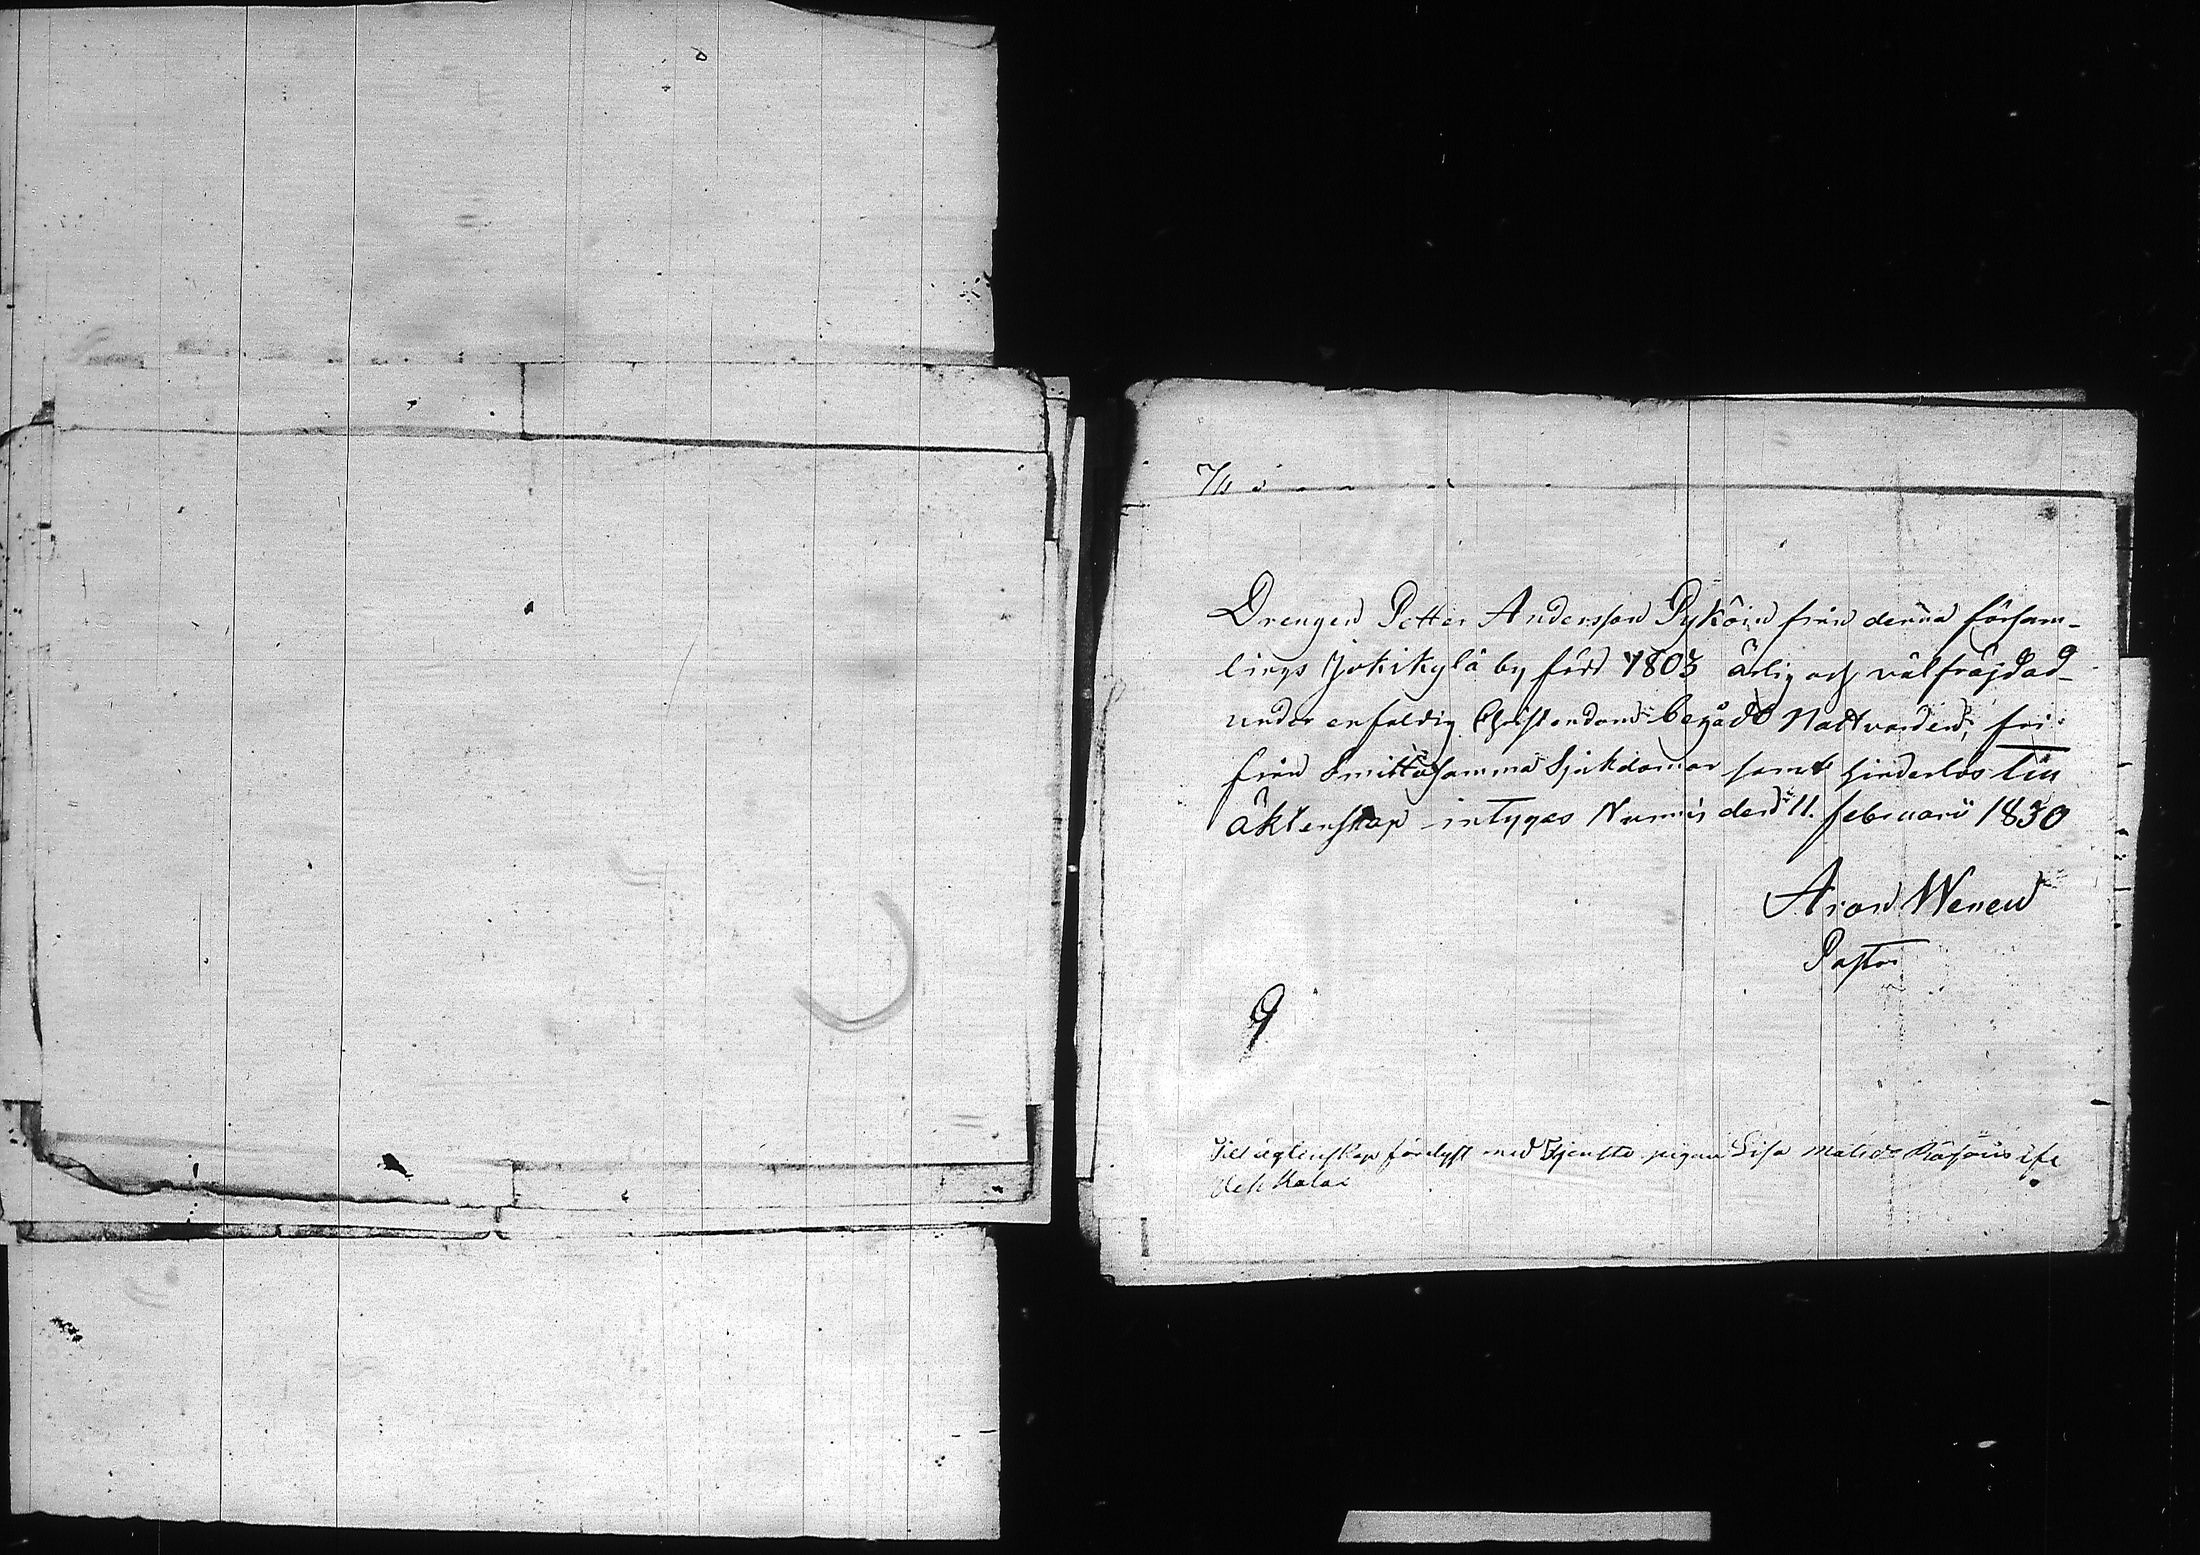 Drengen Petter Andersson Pyköin från denna försam-
lings Jokikylä by född 1803 ärlig och välfräjdad
under enfaldig Christendom begådt Nattvarden, fri
från Smittosamma Sjukdomar samt hinderlös till
äktenskap intygas Nurmis den 11. Februarii 1830
Aron Wenell
Pastor
9
Till äcktenskap förelyst med Tjenste pigan Lisa Matsd:r